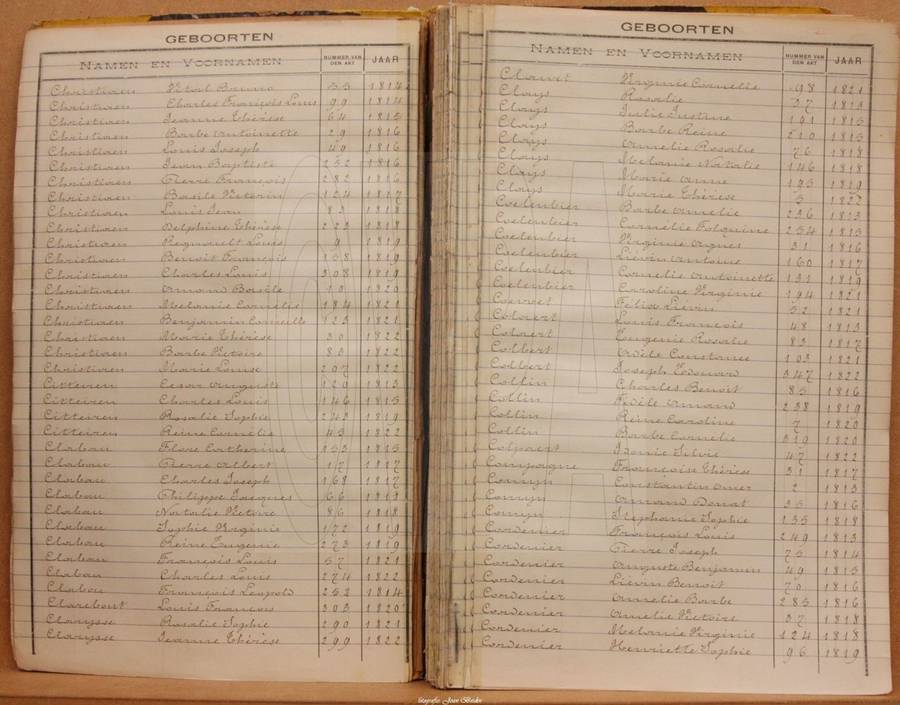 GEBOORTEN
NAMEN EN VOORNAMEN NUMMER VAN DEN AKT JAAR
Christiaen Vital Bruno 53 1814
Christiaen Charles François Louis 99 1814
Christiaen Jeanne Thérèse 64 1815
Christiaen Barbe Antoinette 29 1816
Christiaen Louis Joseph 49 1816
Christiaen Jean Baptiste 252 1816
Christiaen Pierre François 282 1816
Christiaen Basile Victorin 124 1817
Christiaen Louis Jean 83 1818
Christiaen Delphine Thérèse 223 1818
Christiaen Regnault Louis 9 1819
Christiaen Benoit François 158 1819
Christiaen Charles Louis 308 1819
Christiaen Amand Basile 10 1820
Christiaen Melanie Cornelie 184 1821
Christiaen Benjamin Corneille 123 1821
Christiaen Marie Thérèse 30 1822
Christiaen Barbe Victoire 83 1822
Christiaen Marie Louise 207 1822
Citteiren Cesar Auguste 129 1813
Citteiren Charles Louis 146 1815
Citteiren Rosalie Sophie 243 1819
Citteiren Reine Cornelie 43 1822
Clabau Flore Catherine 153 1815
Clabau Pierre Albert 17 1817
Clabau Charles Joseph 168 1817
Clabau Philippe Jacques 66 1818
Clabau Natalie Victoire 86 1818
Clabau Sophie Virginie 172 1819
Clabau Reine Eugenie 273 1819
Clabau François Louis 57 1821
Clabau Charles Louis 274 1822
Clabou François Leopold 252 1814
Clarebout Louis François 303 1820
Clarysse Rosalie Sophie 290 1821
Clarysse Jeanne Thérèse 299 1822
GEBOORTEN
NAMEN EN VOORNAMEN NUMMER VAN DEN AKT JAAR
Clauwet Virginie Cornelie 98 1821
Clays Rosalie 37 1813
Clays Julie Justine 191 1815
Clays Barbe Reine 210 1815
Clays Amelie Rosalie 76 1818
Clays Melanie Natalie 146 1818
Clays Marie Anne 193 1819
Clays Marie Thérèse 5 1822
Coelenbier Barbe Amelie 226 1813
Coelenbier Cornelie Folquine 254 1815
Coelenbier Virginie Agnes 31 1816
Coelenbier Lievin Antoine 160 1817
Coelenbier Cornelie Antoinette 191 1819
Coelenbier Caroline Virginie 194 1821
Coevoet Félix Liévin 52 1821
Colaert Louis François 48 1813
Colaert Eugenie Rosalie 83 1817
Colbert Adèle Constance 103 1821
Colbert Joseph Edouard 347 1822
Collin Charles Benoit 85 1816
Collin Fidèle Amand 238 1819
Collin Reine Caroline 7 1820
Collin Barbe Cornelie 319 1820
Colpaert Idonie Silvie 47 1822
Compagne Françoise Thérèse 31 1817
Comyn Constantin Omer 2 1813
Comyn Amand Donat 35 1816
Comyn Stéphanie Sophie 135 1818
Cordenier François Louis 249 1813
Cordenier Pierre Joseph 75 1814
Cordenier Auguste Benjamin 49 1815
Cordenier Liévin Benoit 70 1816
Cordenier Amelie Barbe 285 1816
Cordenier Amelie Victoire 37 1818
Cordenier Melanie Virginie 124 1818
Cordenier Henriette Sophie 96 1819